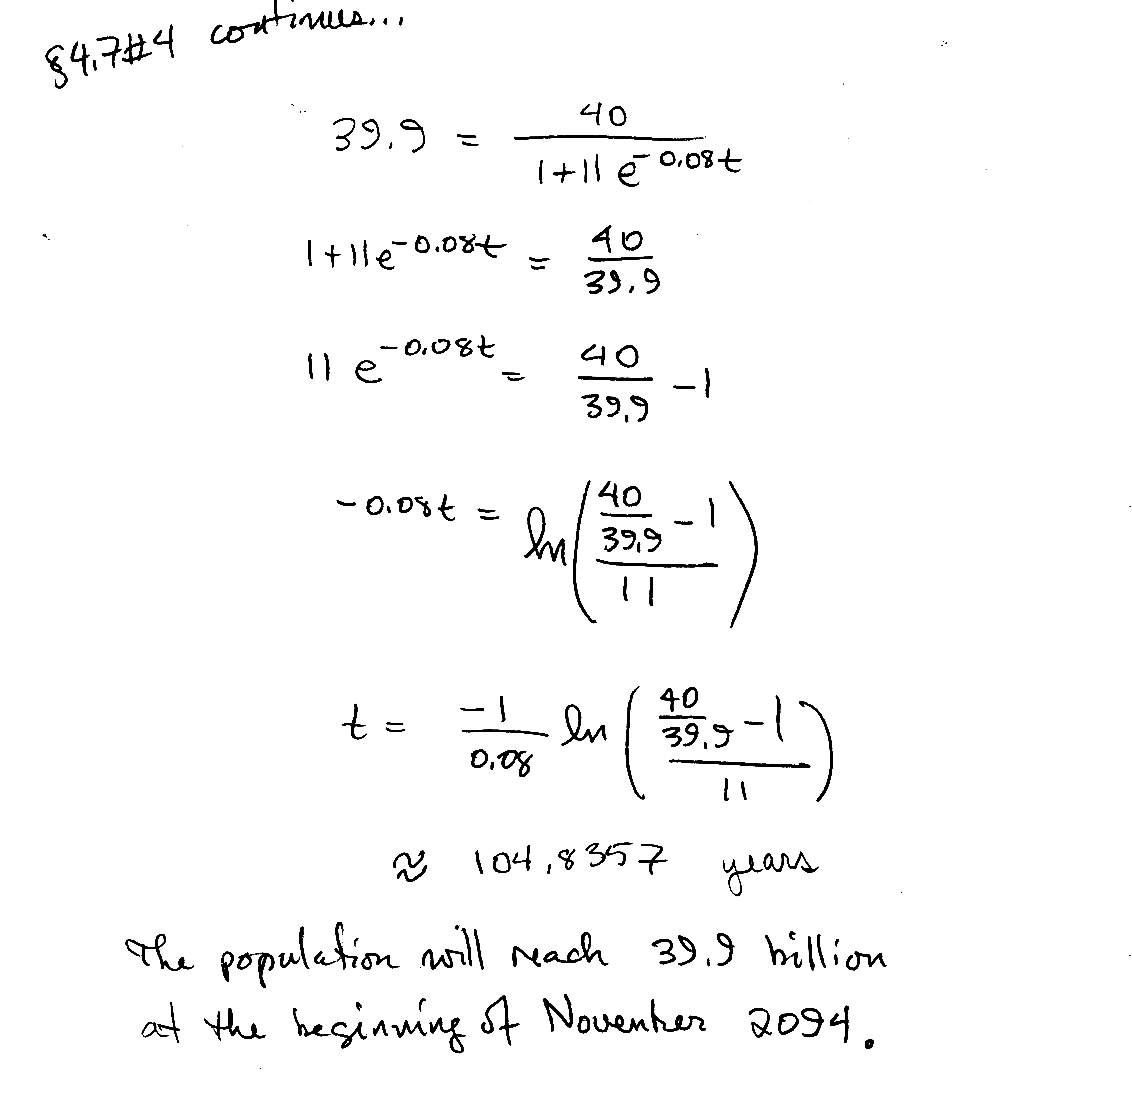 §4.7#4 continues...
39.9 = 40 / (1+11e^-0.08t)
1+11e^-0.08t = 40/39.9
11e^-0.08t = 40/39.9 -1
-0.08t = ln((40/39.9 -1)/11)
t = -1/0.08 ln((40/39.9 -1)/11)
≈ 104.8357 years
The population will reach 39.9 billion
at the beginning of November 2094.